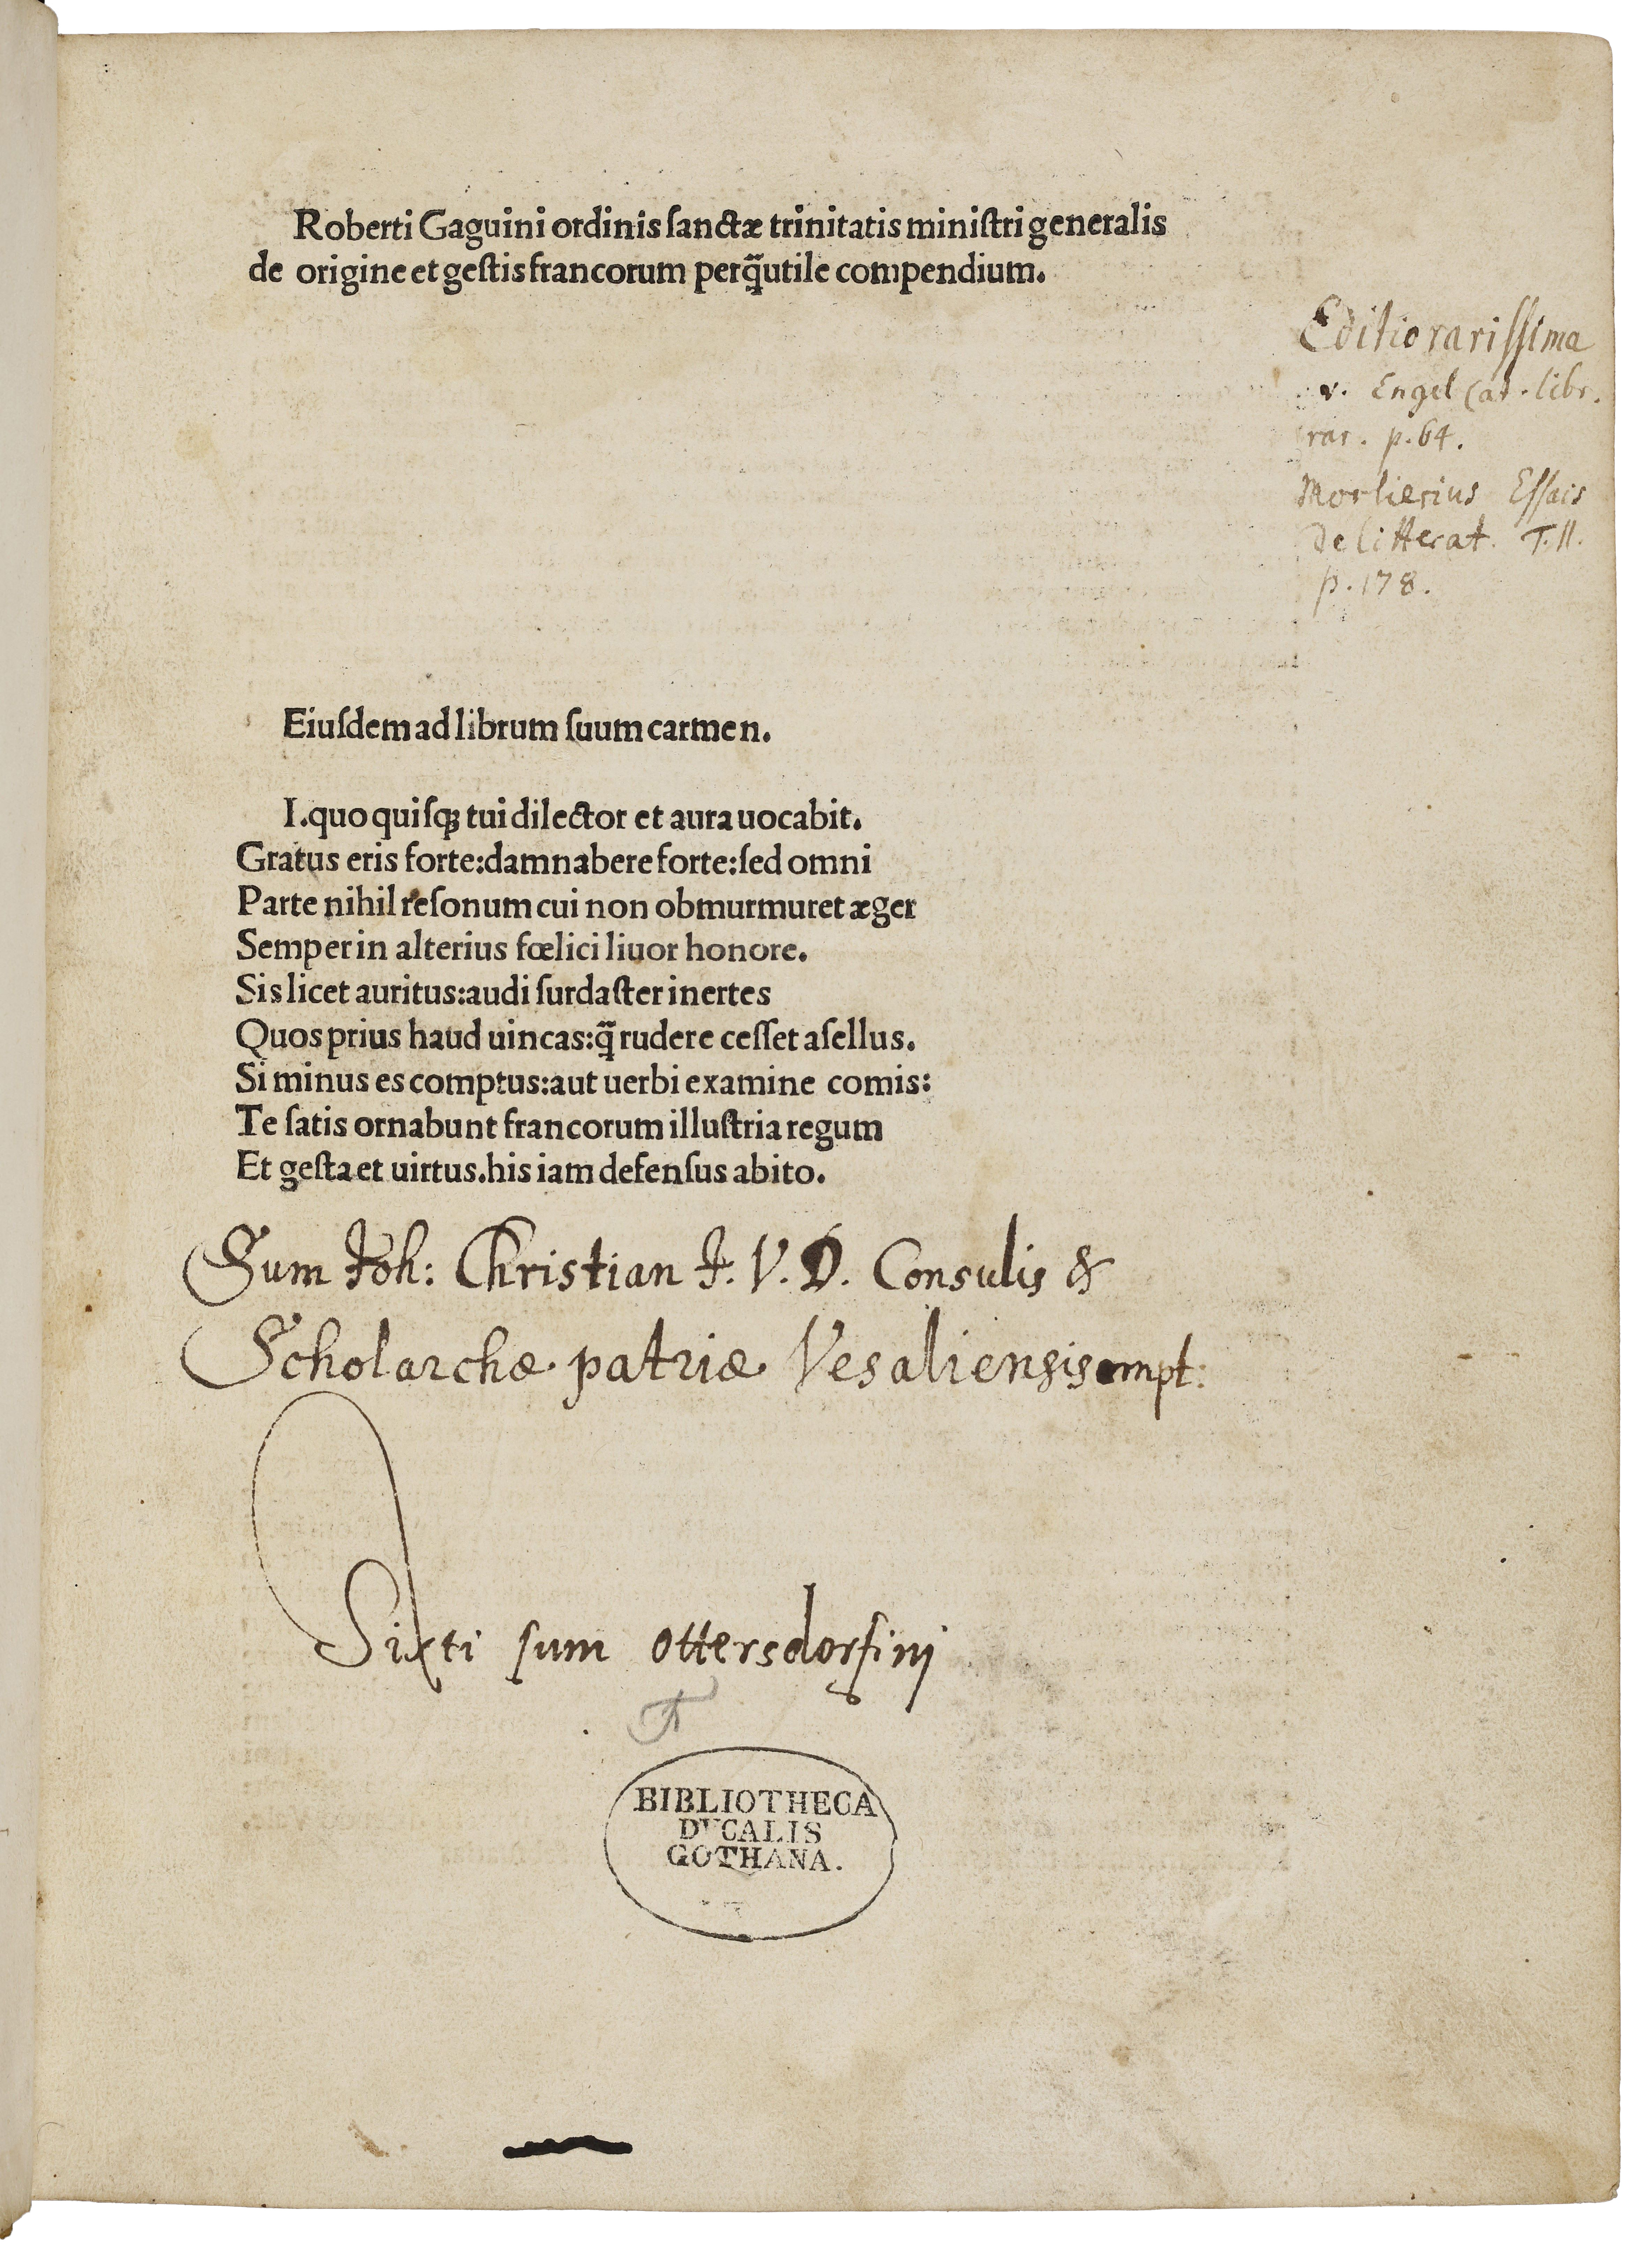 Roberti Gaguini ordinis ſanctæ trinitatis miniſtri generalis
de origine et geſtis francorum perq̃utile compendium.
Editio rarissima
v. Engel Cat. libr.
rar. p. 64.
Morlierius Essais
de litterat. T. II.
p. 178.
Eiuſdem ad librum ſuum carmen.
I.quo quiſq; tui dilector et aura uocabit.
Gratus eris forte:damnabere forte:ſed omni
Parte nihil reſonum cui non obmurmuret æger
Semper in alterius fœlici liuor honore.
Sis licet auritus:audi ſurdaſter inertes
Quos prius haud uincas:q̃ rudere ceſſet aſellus.
Si minus es comptus:aut uerbi examine comis:
Te ſatis ornabunt francorum illuſtria regum
Et geſta et uirtus.his iam defenſus abito.
Sum Joh: Christian J. V. D. Consulis &
Scholarchæ patriæ Vesaliensis empt:
Sixti sum Ottersdorfini
BIBLIOTHECA
DVCALIS
GOTHANA.